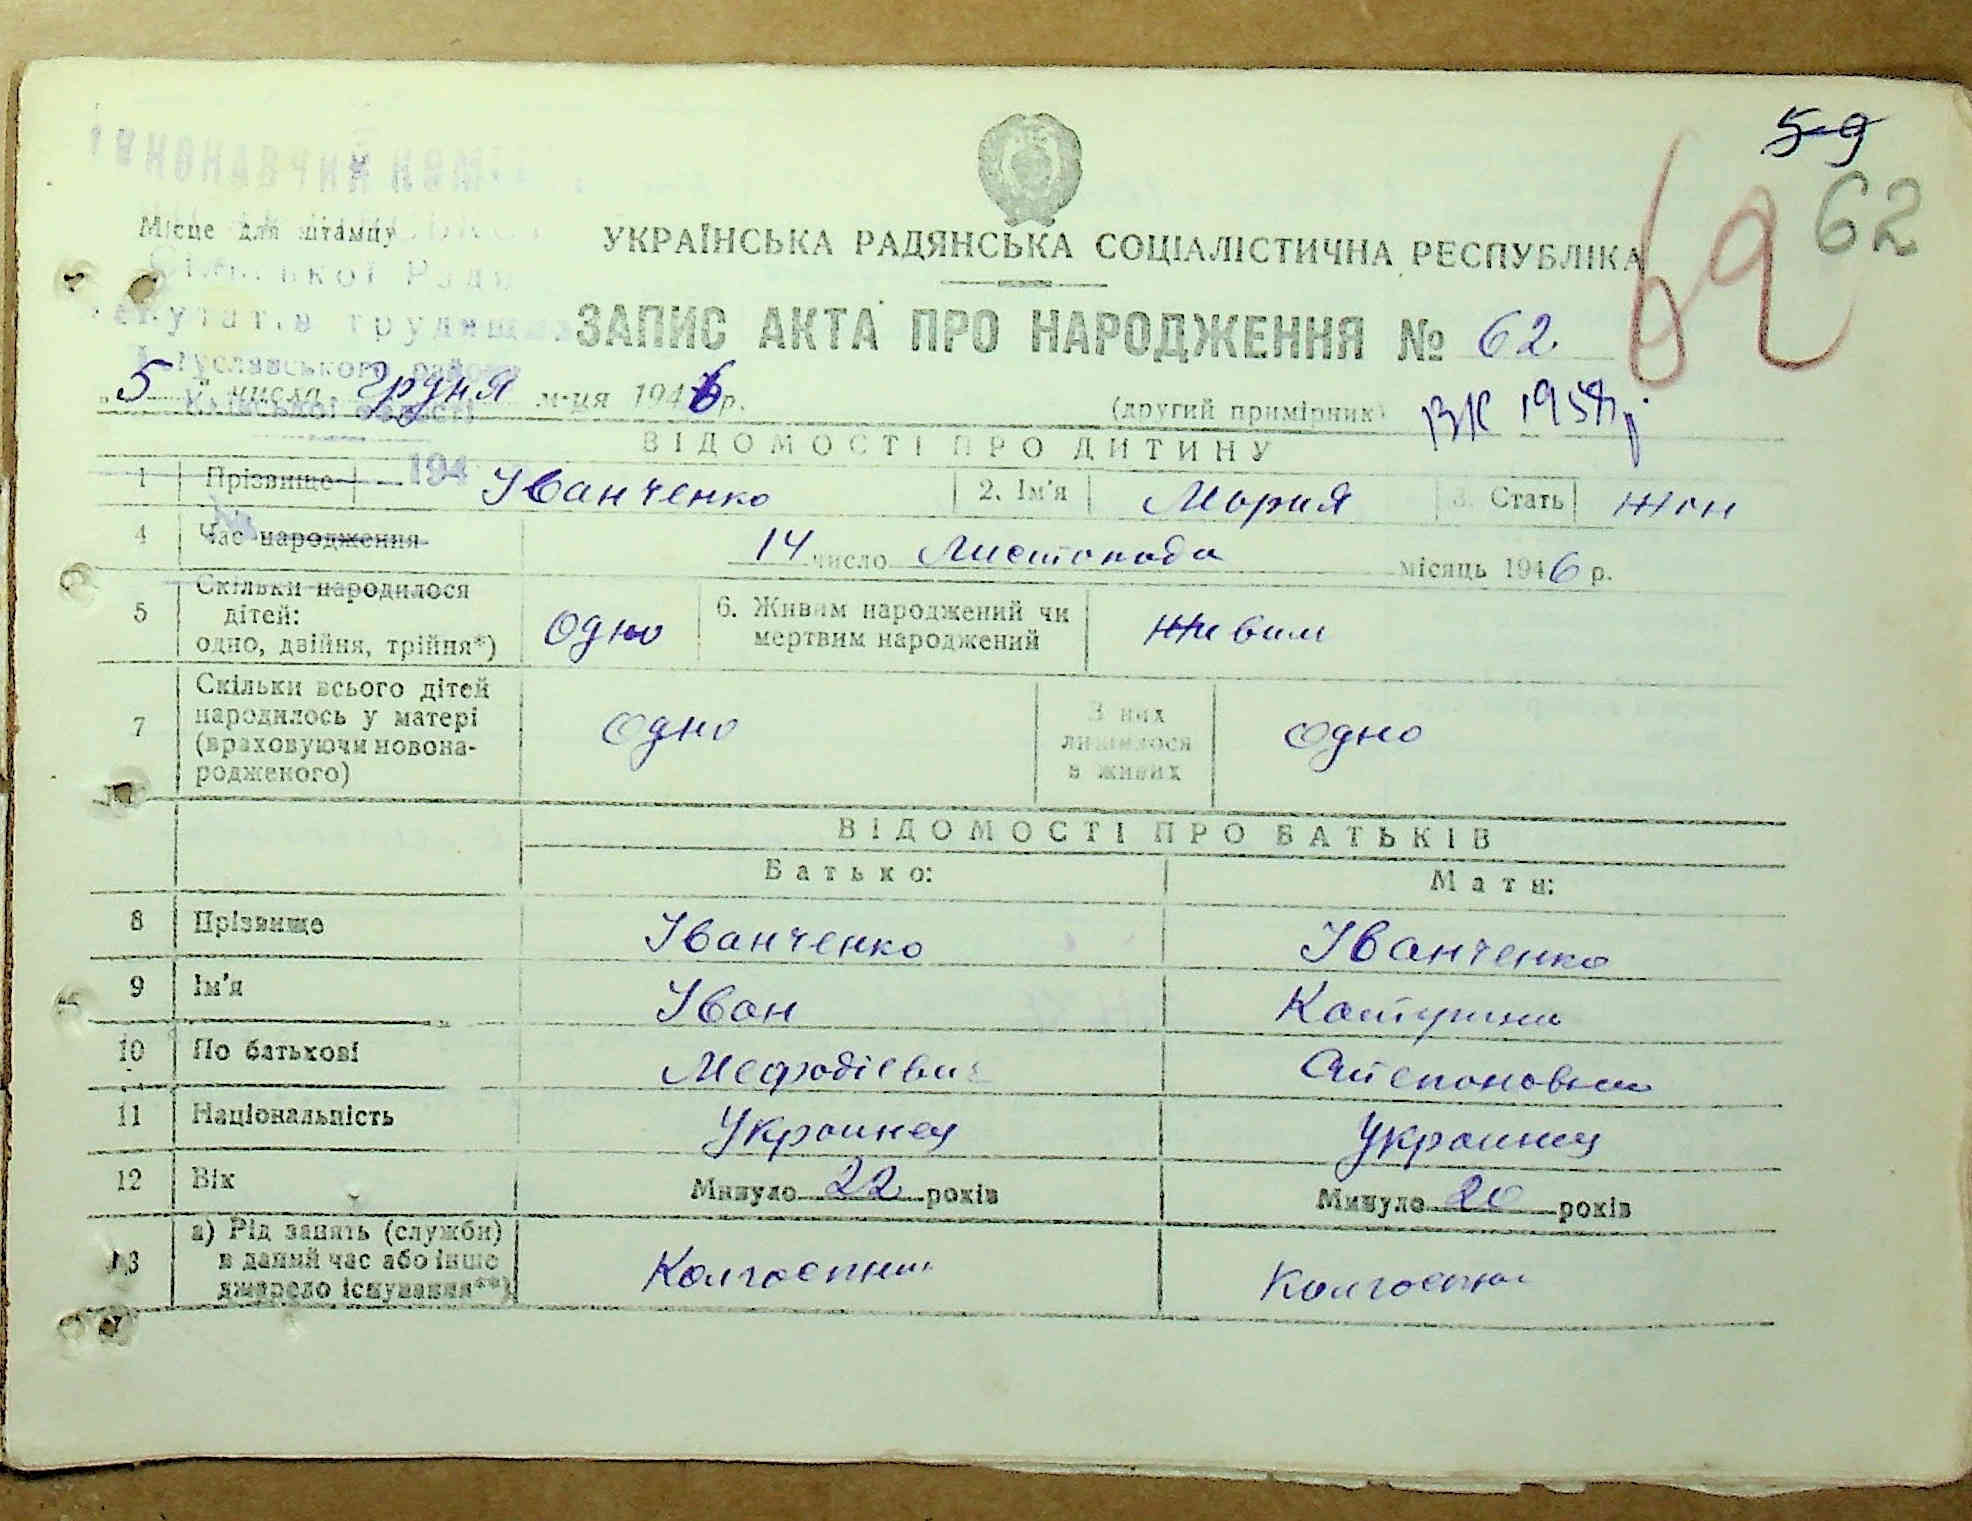 59
62
69
Місце для штампу
Сільської Ради
депутатів трудящих
Богуславського району
Київської області
194
УКРАЇНСЬКА РАДЯНСЬКА СОЦІАЛІСТИЧНА РЕСПУБЛІКА
ЗАПИС АКТА ПРО НАРОДЖЕННЯ № 62
„5" числа Грудня м-ця 1946 р.
(другий примірник) ВК
ВІДОМОСТІ ПРО ДИТИНУ
1 Прізвище Іванченко 2. Ім'я Мария 3. Стать жін
4 Час народження 14 число Листопада місяць 1946 р.
5 Скільки народилося дітей: одно, двійня, трійня*) одно 6. Живим народжений чи мертвим народжений живим
7 Скільки всього дітей народилось у матері (враховуючи новонародженого) одно З них лишилося в живих одно
ВІДОМОСТІ ПРО БАТЬКІВ
Батько: Мати:
8 Прізвище Іванченко Іванченко
9 Ім'я Іван Катерина
10 По батькові Мефодієвич Степановна
11 Національність Украинец Украинец
12 Вік Минуло 22 років Минуло 20 років
13 а) Рід занять (служби) в даний час або інше джерело існування**) Колгоспник Колгоспни